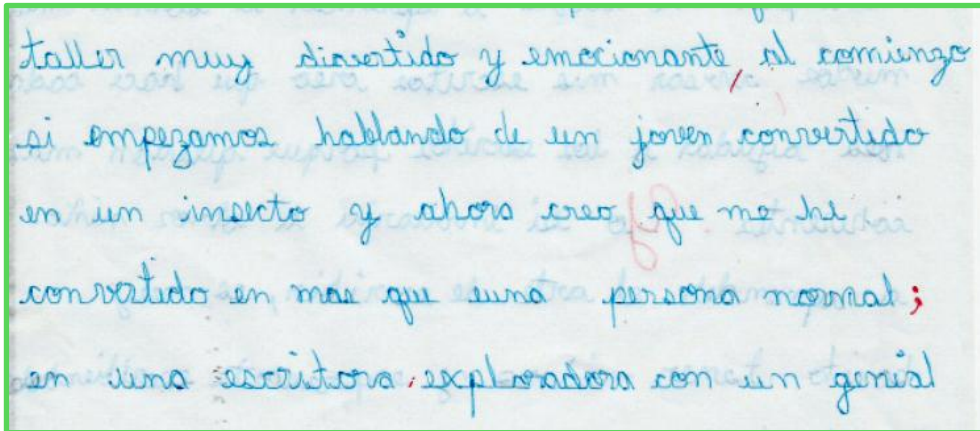 taller muy divertido y emocionante, al comienzo
si empezamos hablando de un joven convertido
en un insecto y ahora creo que me he
convertido en mas que una persona normal;
en una escritora, exploradora con un genial